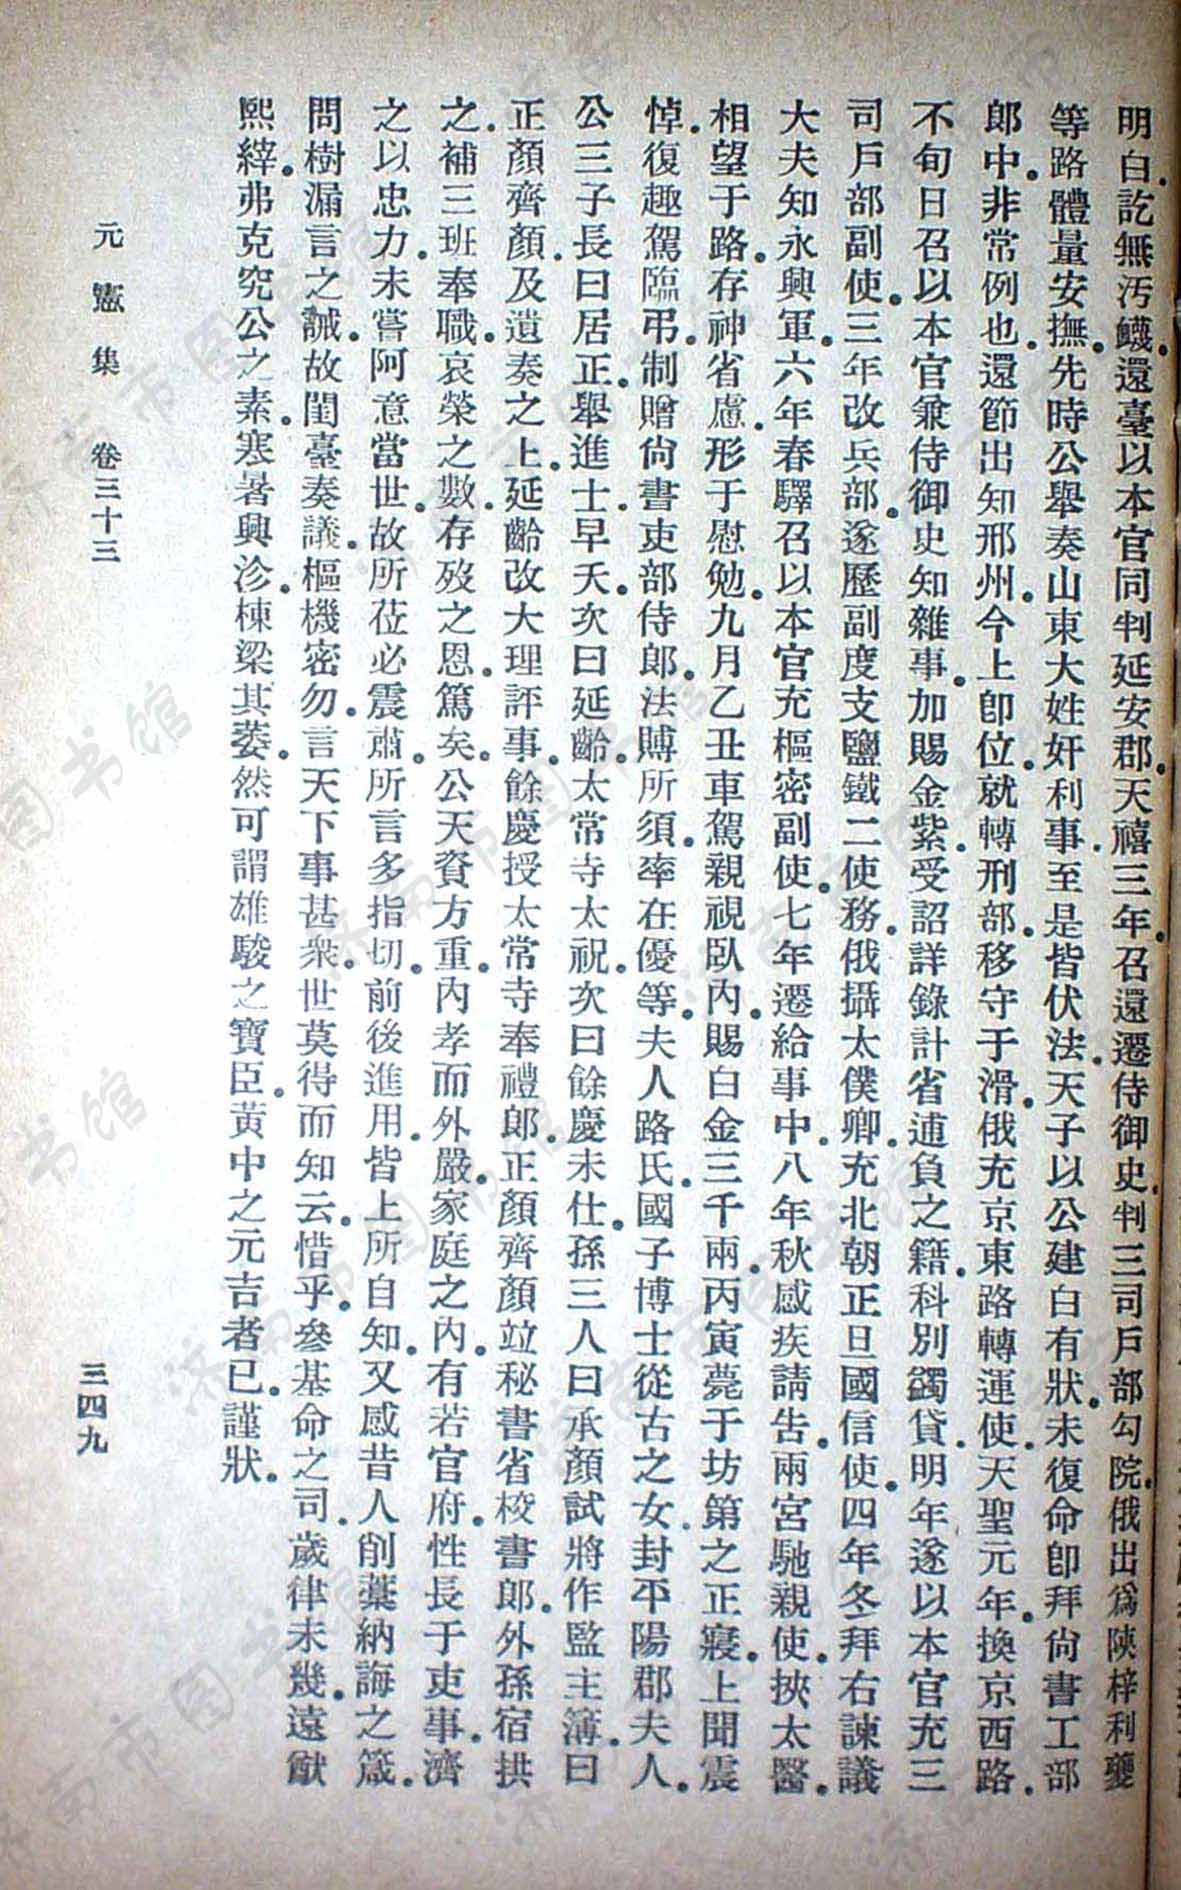 明白訖無污衊。還臺以本官同判延安郡。天禧三年。召還遷侍御史。判三司戶部勾院。俄出爲陝梓利夔
等路體量安撫。先時公舉奏山東大姓奸利事。至是皆伏法。天子以公建白有狀。未復命卽拜尙書工部
郎中。非常例也。還節出知邢州。今上卽位。就轉刑部。移守于滑。俄充京東路轉運使。天聖元年。換京西路。
不旬日召以本官兼侍御史知雜事。加賜金紫。受詔詳錄計省逋負之籍。科別蠲貸。明年遂以本官充三
司戶部副使。三年改兵部。遂歷副度支鹽鐵二使務。俄攝太僕卿。充北朝正旦國信使。四年冬。拜右諫議
大夫知永興軍。六年春。驛召以本官充樞密副使。七年遷給事中。八年秋感疾請告。兩宮馳親使。挾太醫。
相望于路。存神省慮。形于慰勉。九月乙丑車駕親視臥內。賜白金三千兩。丙寅薨于坊第之正寢。上聞震
悼。復趣駕臨弔。制贈尙書吏部侍郎。法賻所須。率在優等。夫人路氏。國子博士從古之女。封平陽郡夫人。
公三子。長曰居正。舉進士。早夭。次曰延齡。太常寺太祝。次曰餘慶未仕。孫三人。曰承顏試將作監主簿。曰
正顏齊顏。及遺奏之上。延齡改大理評事。餘慶授太常寺奉禮郎。正顏齊顏竝秘書省校書郎。外孫宿拱
之。補三班奉職。哀榮之數。存歿之恩。篤矣。公天資方重。內孝而外嚴。家庭之內。有若官府。性長于吏事。濟
之以忠力。未嘗阿意當世。故所莅必震肅。所言多指切。前後進用。皆上所自知。又感昔人削藁納誨之箴。
問樹漏言之誡。故閨臺奏議。樞機密勿。言天下事甚衆。世莫得而知云。惜乎。參基命之司。歲律未幾。遠猷
熙繂。弗克究公之素。寒暑興沴。棟梁其萎。然可謂雄駿之寶臣。黃中之元吉者已。謹狀。
元憲集　卷三十三　三四九
济南市图书馆